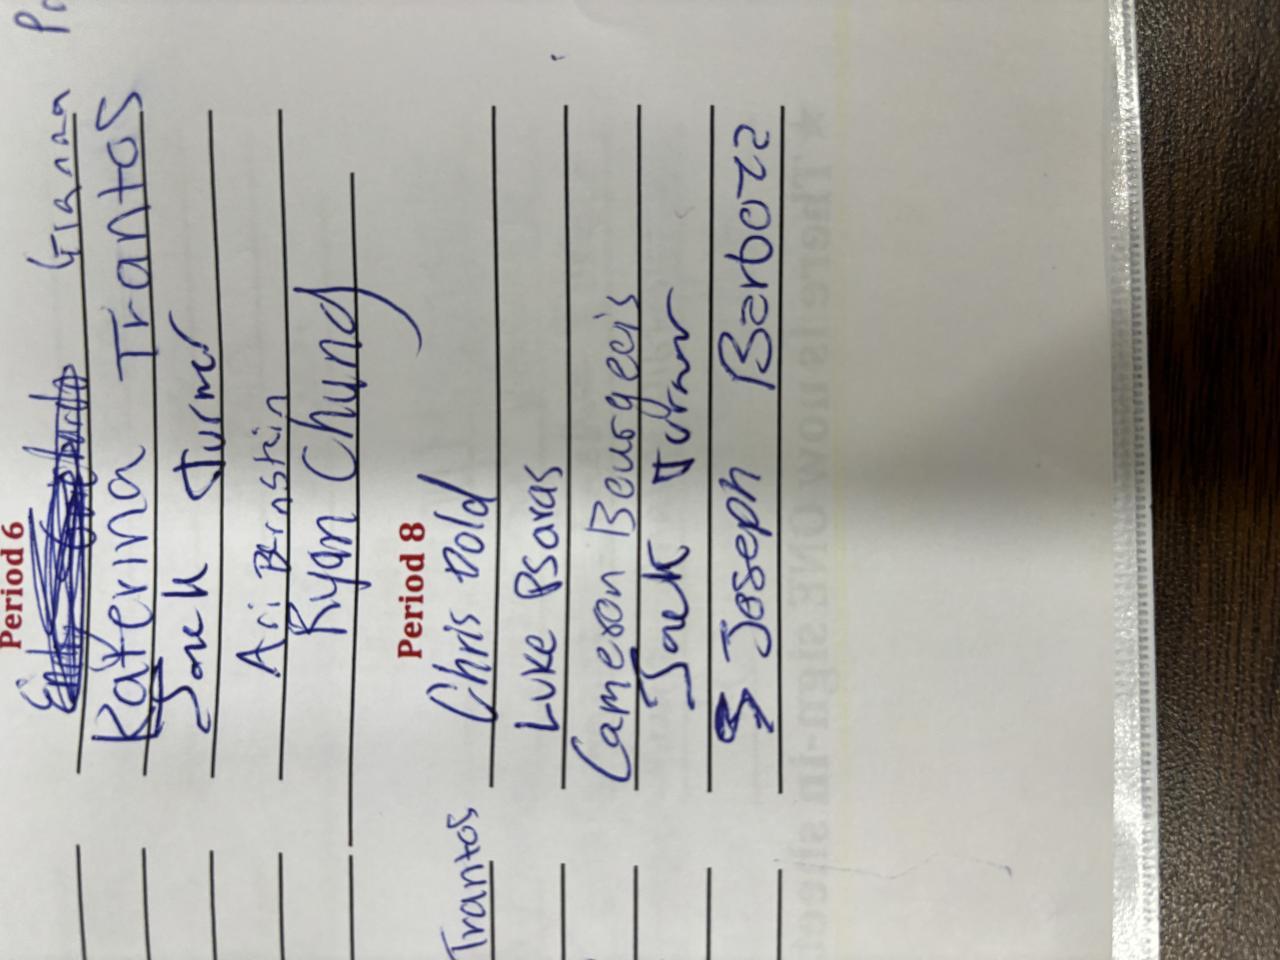 Period 6
Gianna
Katerina Trantos
Jack Turner
Ari Bernstin
Ryan Chung
Period 8
Chris Dold
Trantos
Luke PSaras
Cameron Bourgeois
Jack Turner
Joseph Barboza
★ There is now ONE sign-in sheet